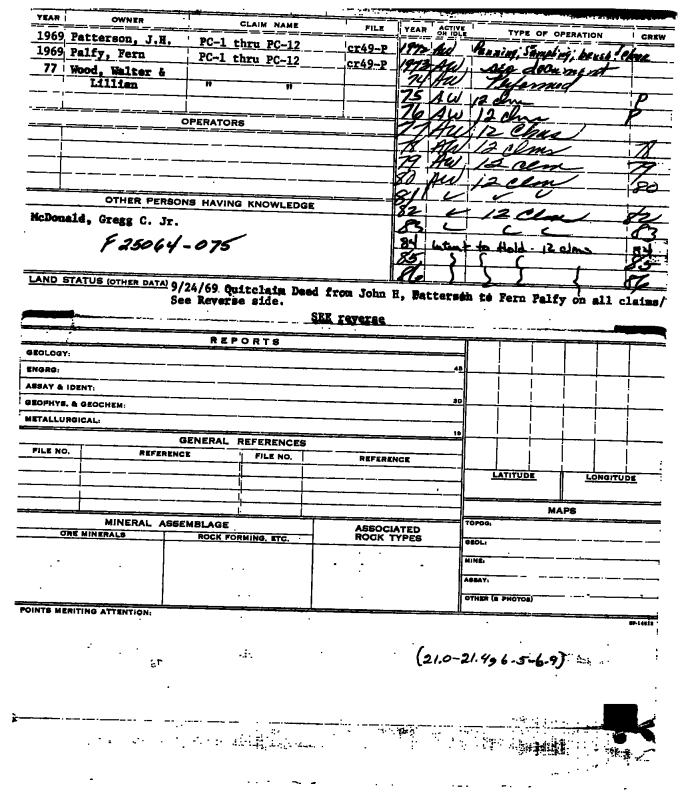 YEAR OWNER CLAIM NAME FILE
1969 Patterson, J.H. PC-1 thru PC-12 cr49-P
1969 Palfy, Fern PC-1 thru PC-12 cr49-P
77 Wood, Walter &
Lillian " "
OPERATORS
OTHER PERSONS HAVING KNOWLEDGE
McDonald, Gregg C. Jr.
F 25064-075
YEAR ACTIVE OR IDLE TYPE OF OPERATION CREW
1972 AW Panning, Sampling, brush
1973 AW see document
74 AW Performed
75 AW 12 clms P
76 AW 12 clms P
77 AW 12 Clms
78 AW 12 clms 78
79 AW 12 clm 79
80 AW 12 Clm 80
81 ✓ ✓ ✓
82 ✓ 12 Clms 82
83 ✓ ✓ ✓ 83
84 Intent to Hold - 12 clms 84
85 } } { 85
86 } } } } 86
LAND STATUS (OTHER DATA) 9/24/69 Quitclaim Deed from John H, Patterson to Fern Palfy on all claims/
See Reverse side.
SEE reverse
REPORTS
GEOLOGY:
ENGRG: 45
ASSAY & IDENT:
GEOPHYS. & GEOCHEM: 30
METALLURGICAL: 15
GENERAL REFERENCES
FILE NO. REFERENCE FILE NO. REFERENCE
LATITUDE LONGITUDE
MINERAL ASSEMBLAGE
ORE MINERALS ROCK FORMING, ETC.
ASSOCIATED
ROCK TYPES
MAPS
TOPOG:
GEOL:
MINE:
ASSAY:
OTHER (& PHOTOS)
POINTS MERITING ATTENTION:
(21.0-21.4, 6.5-6.9)